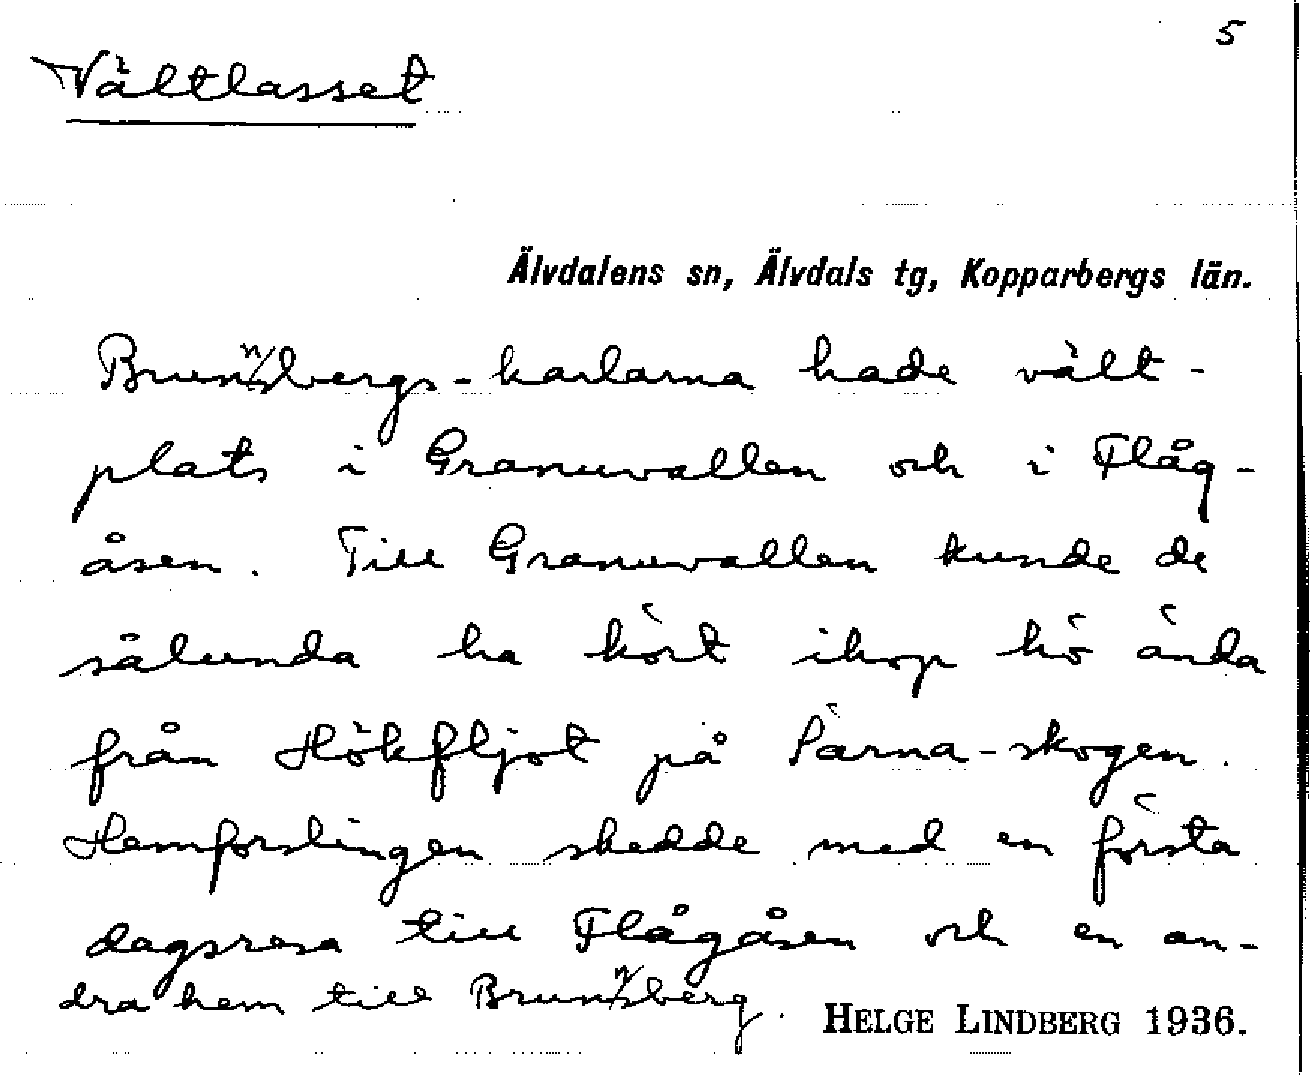 5
Vältlasset
Älvdalens sn, Älvdals tg, Kopparbergs län.
Brunnsbergs-karlarna hade vält-
plats i Granuvallen och i Flåg-
åsen. Till Granuvallen kunde de
sålunda ha kört ihop hö ända
från Hökfljot på Särna-skogen.
Hemforslingen skedde med en första
dagsresa till Flågåsen och en an-
dra hem till Brunnsberg.
HELGE LINDBERG 1936.